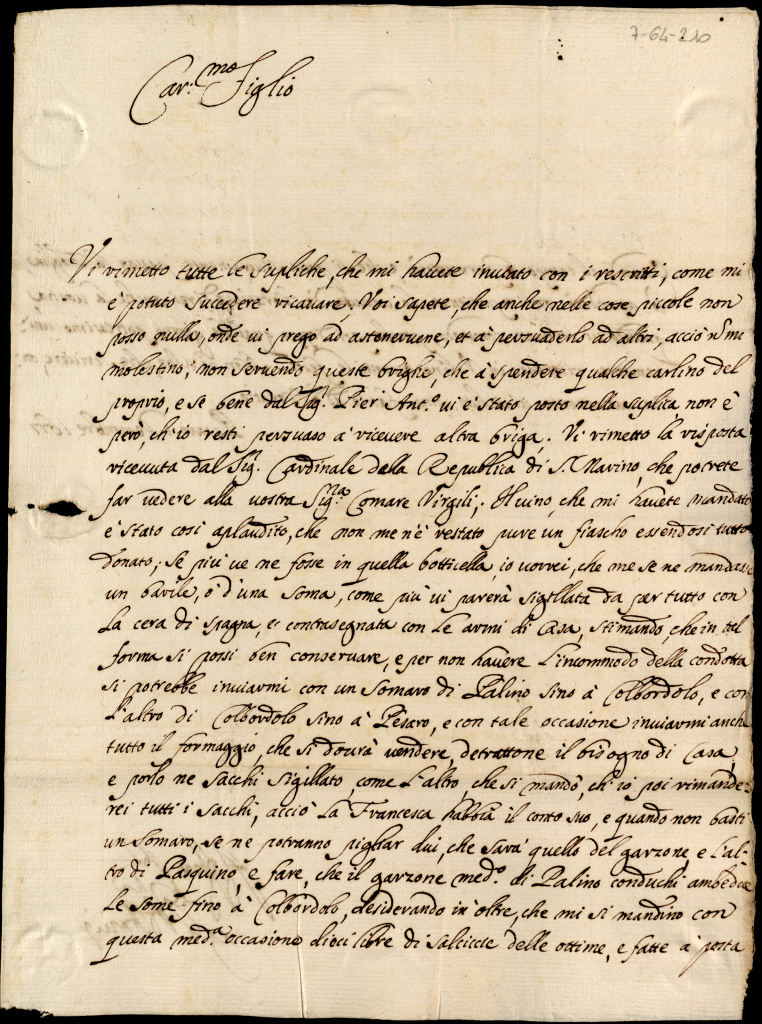 7-64-210
Car:mo Figlio
Vi rimetto tutte le supliche, che mi havete inviato con i rescritti, come mi
è potuto succedere ricavare, Voi sapete, che anche nelle cose piccole non
posso nulla, onde vi prego ad astenervene, et à persuaderlo ad altri, acciò nō mi
molestino, non servendo queste brighe, che à spendere qualche carlino del
proprio, e se bene dal Sig.r Pier Ant.o vi è stato posto nella suplica, non è
però, ch'io resti persuaso à ricevere altra briga. Vi rimetto la risposta
ricevuta dal Sig. Cardinale dalla Republica di S. Marino, che potrete
far vedere alla vostra Sig.ra Comare Virgilj. Il vino, che mi havete mandato
è stato così aplaudito, che non me n'è restato pure un fiascho essendosi tutto
donato; se più ve ne fosse in quella botticella, io vorrei, che me se ne mandasse
un barile, ò d'una soma, come più vi parerà sigillata da per tutto con
la cera di spagna, e contrasegnata con le armi di Casa, stimando, che in tal
forma si possi ben conservare, e per non havere l'incommodo della condotta
si potrebbe inviarmi con un somaro di Palino sino à Colbordolo, e con
l'altro di Colbordolo sino à Pesaro, e con tale occasione inviarmi anche
tutto il formaggio, che si dovrà vendere, detrattone il bisogno di Casa,
e porlo ne sacchi sigillato, come l'altro, che si mandò, ch'io poi rimande-
rei tutti i sacchi, acciò la Francesca habbia il conto suo, e quando non basti
un somaro, se ne potranno pigliar dui, che sarà quello del garzone, e l'al-
tro di Pasquino, e fare, che il garzone med.o di Palino conduchi ambedue
le some fino à Colbordolo, desiderando in oltre, che mi si mandino con
questa med.a occasione dieci libre di salciccie delle ottime, e fatte à posta